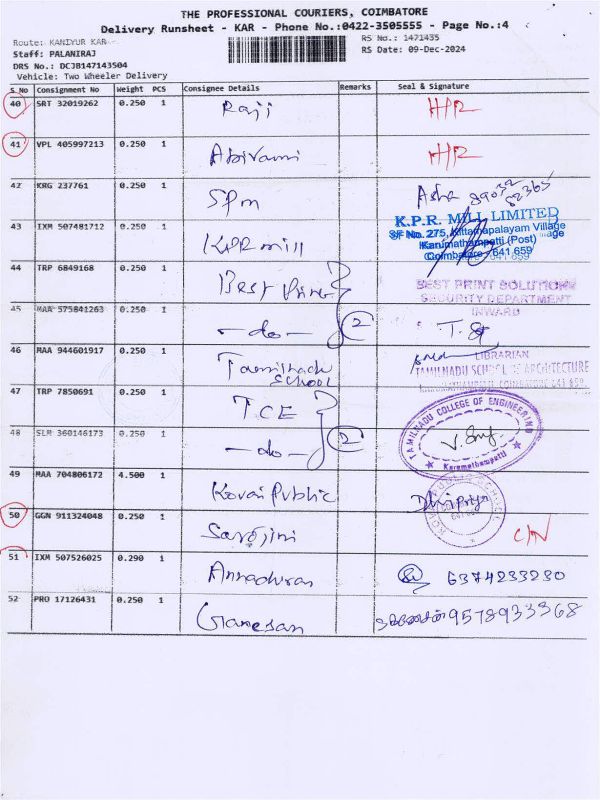 THE PROFESSIONAL COURIERS, COIMBATORE
Delivery Runsheet - KAR - Phone No.:0422-3505555 - Page No.:4
Route: KANIYUR KAR
RS No.: 1471435
Staff: PALANIRAJ
RS Date: 09-Dec-2024
DRS No.: DCJB147143504
Vehicle: Two Wheeler Delivery
S.No Consignment No Weight PCS Consignee Details Remarks Seal & Signature
40 SRT 32019262 0.250 1 Raji H/R
41 VPL 405997213 0.250 1 Abirami H/R
42 KRG 237761 0.250 1 SPM Asha
43 IXM 507481712 0.250 1 KPR mill
K.P.R. MILL LIMITED
SF No. 275, Kittampalayam Village
Karumathampatti (Post)
Coimbatore - 641 659
44 TRP 6849168 0.250 1 Best Print
BEST PRINT SOLUTION
SECURITY DEPARTMENT
INWARD
45 MAA 575841263 0.250 1 -do- 2
46 MAA 944601917 0.250 1 Tamilnadu School
LIBRARIAN
TAMILNADU SCHOOL OF ARCHITECTURE
47 TRP 7850691 0.250 1 TCE
TAMILNADU COLLEGE OF ENGINEERING
Karumathampatti
48 SLM 360146173 0.250 1 -do- 2
49 MAA 704806172 4.500 1 Kovai Public Dhivpriya
50 GGN 911324048 0.250 1 Sarojini C/N
51 IXM 507526025 0.290 1 Annadurai 6374233230
52 PRO 17126431 0.250 1 Ganesan 9578933368